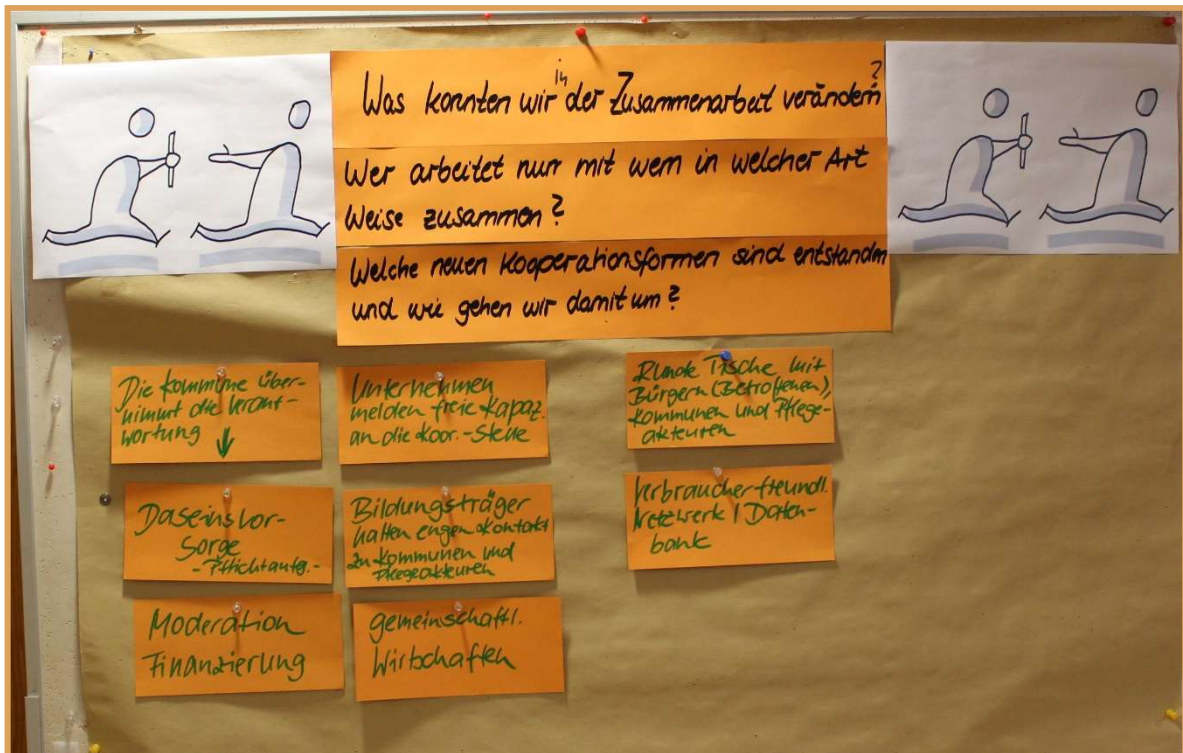 Was konnten wir in der Zusammenarbeit verändern?
Wer arbeitet nun mit wem in welcher Art
Weise zusammen?
Welche neuen Kooperationsformen sind entstanden
und wie gehen wir damit um?
Die Kommune über-
nimmt die Verant-
wortung
Daseinsvor-
sorge
- Pflichtaufg. -
Moderation
Finanzierung
Unternehmen
melden freie Kapaz.
an die Koor.-Stelle
Bildungsträger
halten engen Kontakt
zu Kommunen und
Pflegeakteuren
gemeinschaftl.
Wirtschaften
Runde Tische mit
Bürgern (Betroffenen),
Kommunen und Pflege-
akteuren
Verbraucherfreundl.
Netzwerk / Daten-
bank